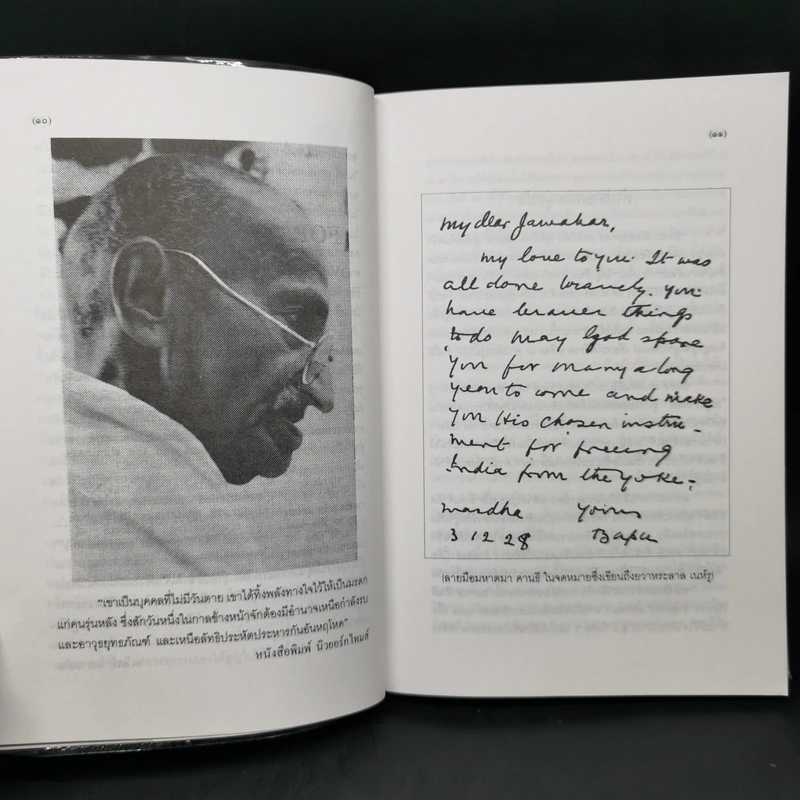 (๑๐)
"เขาเป็นบุคคลที่ไม่มีวันตาย เขาได้ทิ้งพลังทางใจไว้ให้เป็นมรดก
แก่คนรุ่นหลัง ซึ่งสักวันหนึ่งในกาลข้างหน้าจักต้องมีอำนาจเหนือกำลังรบ
และอาวุธยุทธภัณฑ์ และเหนือลัทธิประหัตประหารกันอันหฤโหด"
หนังสือพิมพ์ นิวยอร์กไทมส์
(๑๑)
my dear Jawahar,
my love to you. It was
all done bravely. You
have braver things
to do may God spare
you for many a long
year to come and make
you His chosen instru-
ment for freeing
India from the yoke.
Wardha Yours
3 12 28 Bapu
(ลายมือมหาตมา คานธี ในจดหมายซึ่งเขียนถึงยวาหระลาล เนห์รู)